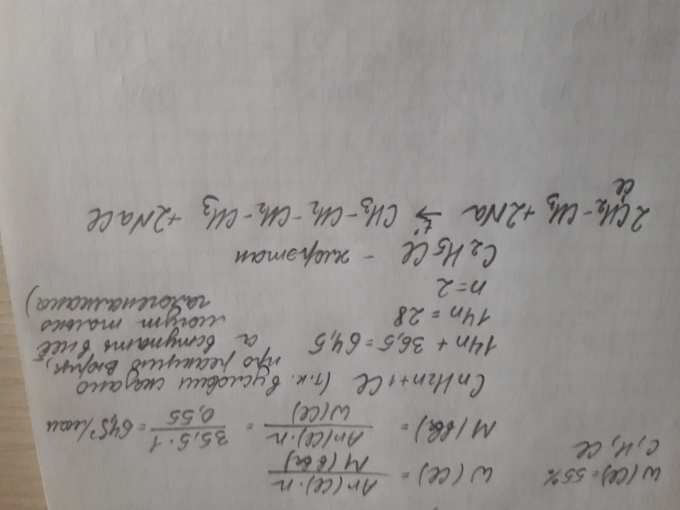 W(Cl)=55%
C, H, Cl
W(Cl) = Ar(Cl)·n / M(вва)
M(вва) = Ar(Cl)·n / W(Cl) = 35,5·1 / 0,55 = 64,5 г/моль
CnH2n+1Cl (т.к. в условии сказано
про реакцию Вюрца,
а
вступать в неё
могут только
галогеналканы)
14n + 36,5 = 64,5
14n = 28
n=2
C2H5Cl - хлорэтан
2CH2-CH3 + 2Na t°→ CH3-CH2-CH2-CH3 + 2NaCl
Cl